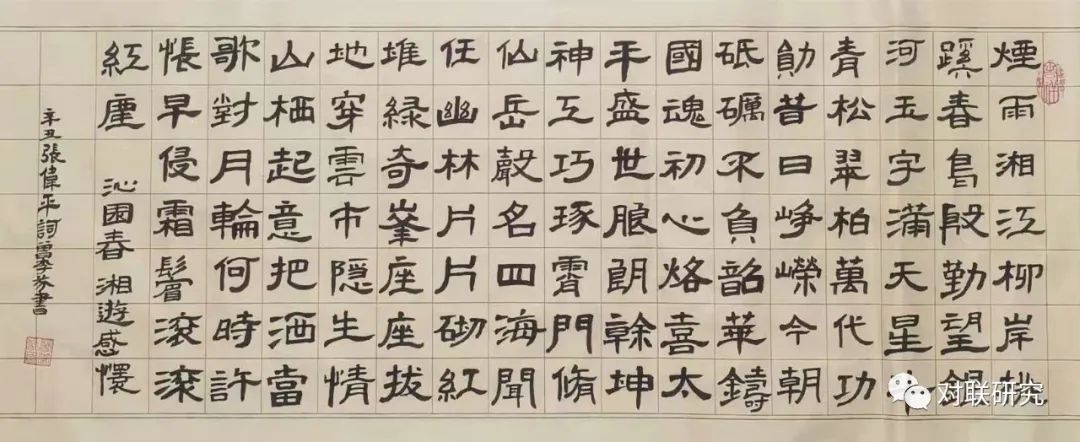 煙雨湘江柳岸桃
蹊春鳥殷勤望銀
河玉宇滿天星
青松翠柏萬代功
勛昔日崢嶸今朝
砥礪不負韶華鑄
國魂初心烙喜太
平盛世朖朗乾坤
神工巧琢霄門脩
仙岳聲名四海聞
任幽林片片砌紅
堆綠奇峯座座拔
地穿雲市隱生情
山栖起意把酒當
歌對月輪何時許
悵早侵霜鬢滾滾
紅塵 沁園春 湘遊感懷
辛丑張偉平詞曾書
对联研究